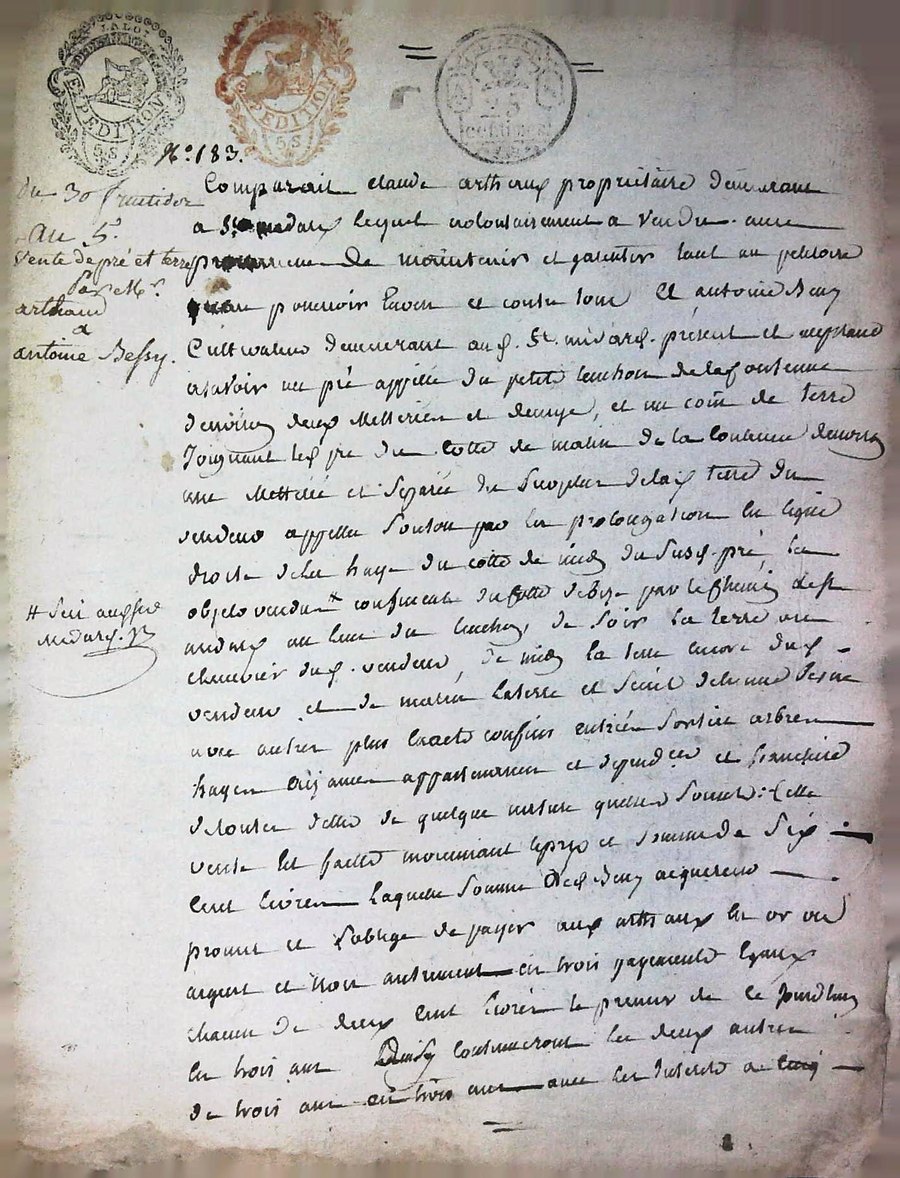 LA LOI
EXPEDITION
5 S
EXPEDITION
5 S
25
centimes
N.° 183.
du 30 fructidor
an 5.
Vente de pré et terre
par M.r
arthaud
a
antoine Bessy.
Comparait claude arthaux propriétaire demeurant
a St. medard lequel volontairement a vendu avec
de maintenir et garentir tant au petitoire
pouvoir et contre tous a antoine Bessy
Cultivateur demeurant aud. St. midard. présent et acceptant
asavoir un pré appellé du petit de la fontenne
d'environ deux Metterées et demye, et un coin de terre
Joignant led. pré du cotté de matin de la contenue d'environ
une Metterée et séparée du surplus de lad. terre du
vendeur appellée par la prolongation en ligne
droite de la haye du cotté de midy du susd. pré, les
objets vendus # confinent du cotté de Bize par le chemin de St.
medard au lieu du de soir la terre ou
chenevier dud. vendeur, de midy la terre encore dud.
vendeur et de matin la terre et
avec autres plus exacts confins entrées sorties arbres
hayes aizances appartenances et dependces et franchise
de toutes dettes de quelque nature quelles soient. Cette
vente est faitte moyennant le prix et somme de six
cent livres laquelle somme led. Bessy acquereur
promet et s'oblige de payer aud. arthaux en or ou
argent et non autrement en trois payements egaux
chacun de deux cent livres le premier de ce jourdhuy
en trois ans continueront les deux autres
de trois ans en trois ans avec les interets a
# sur aud. St.
Medard.